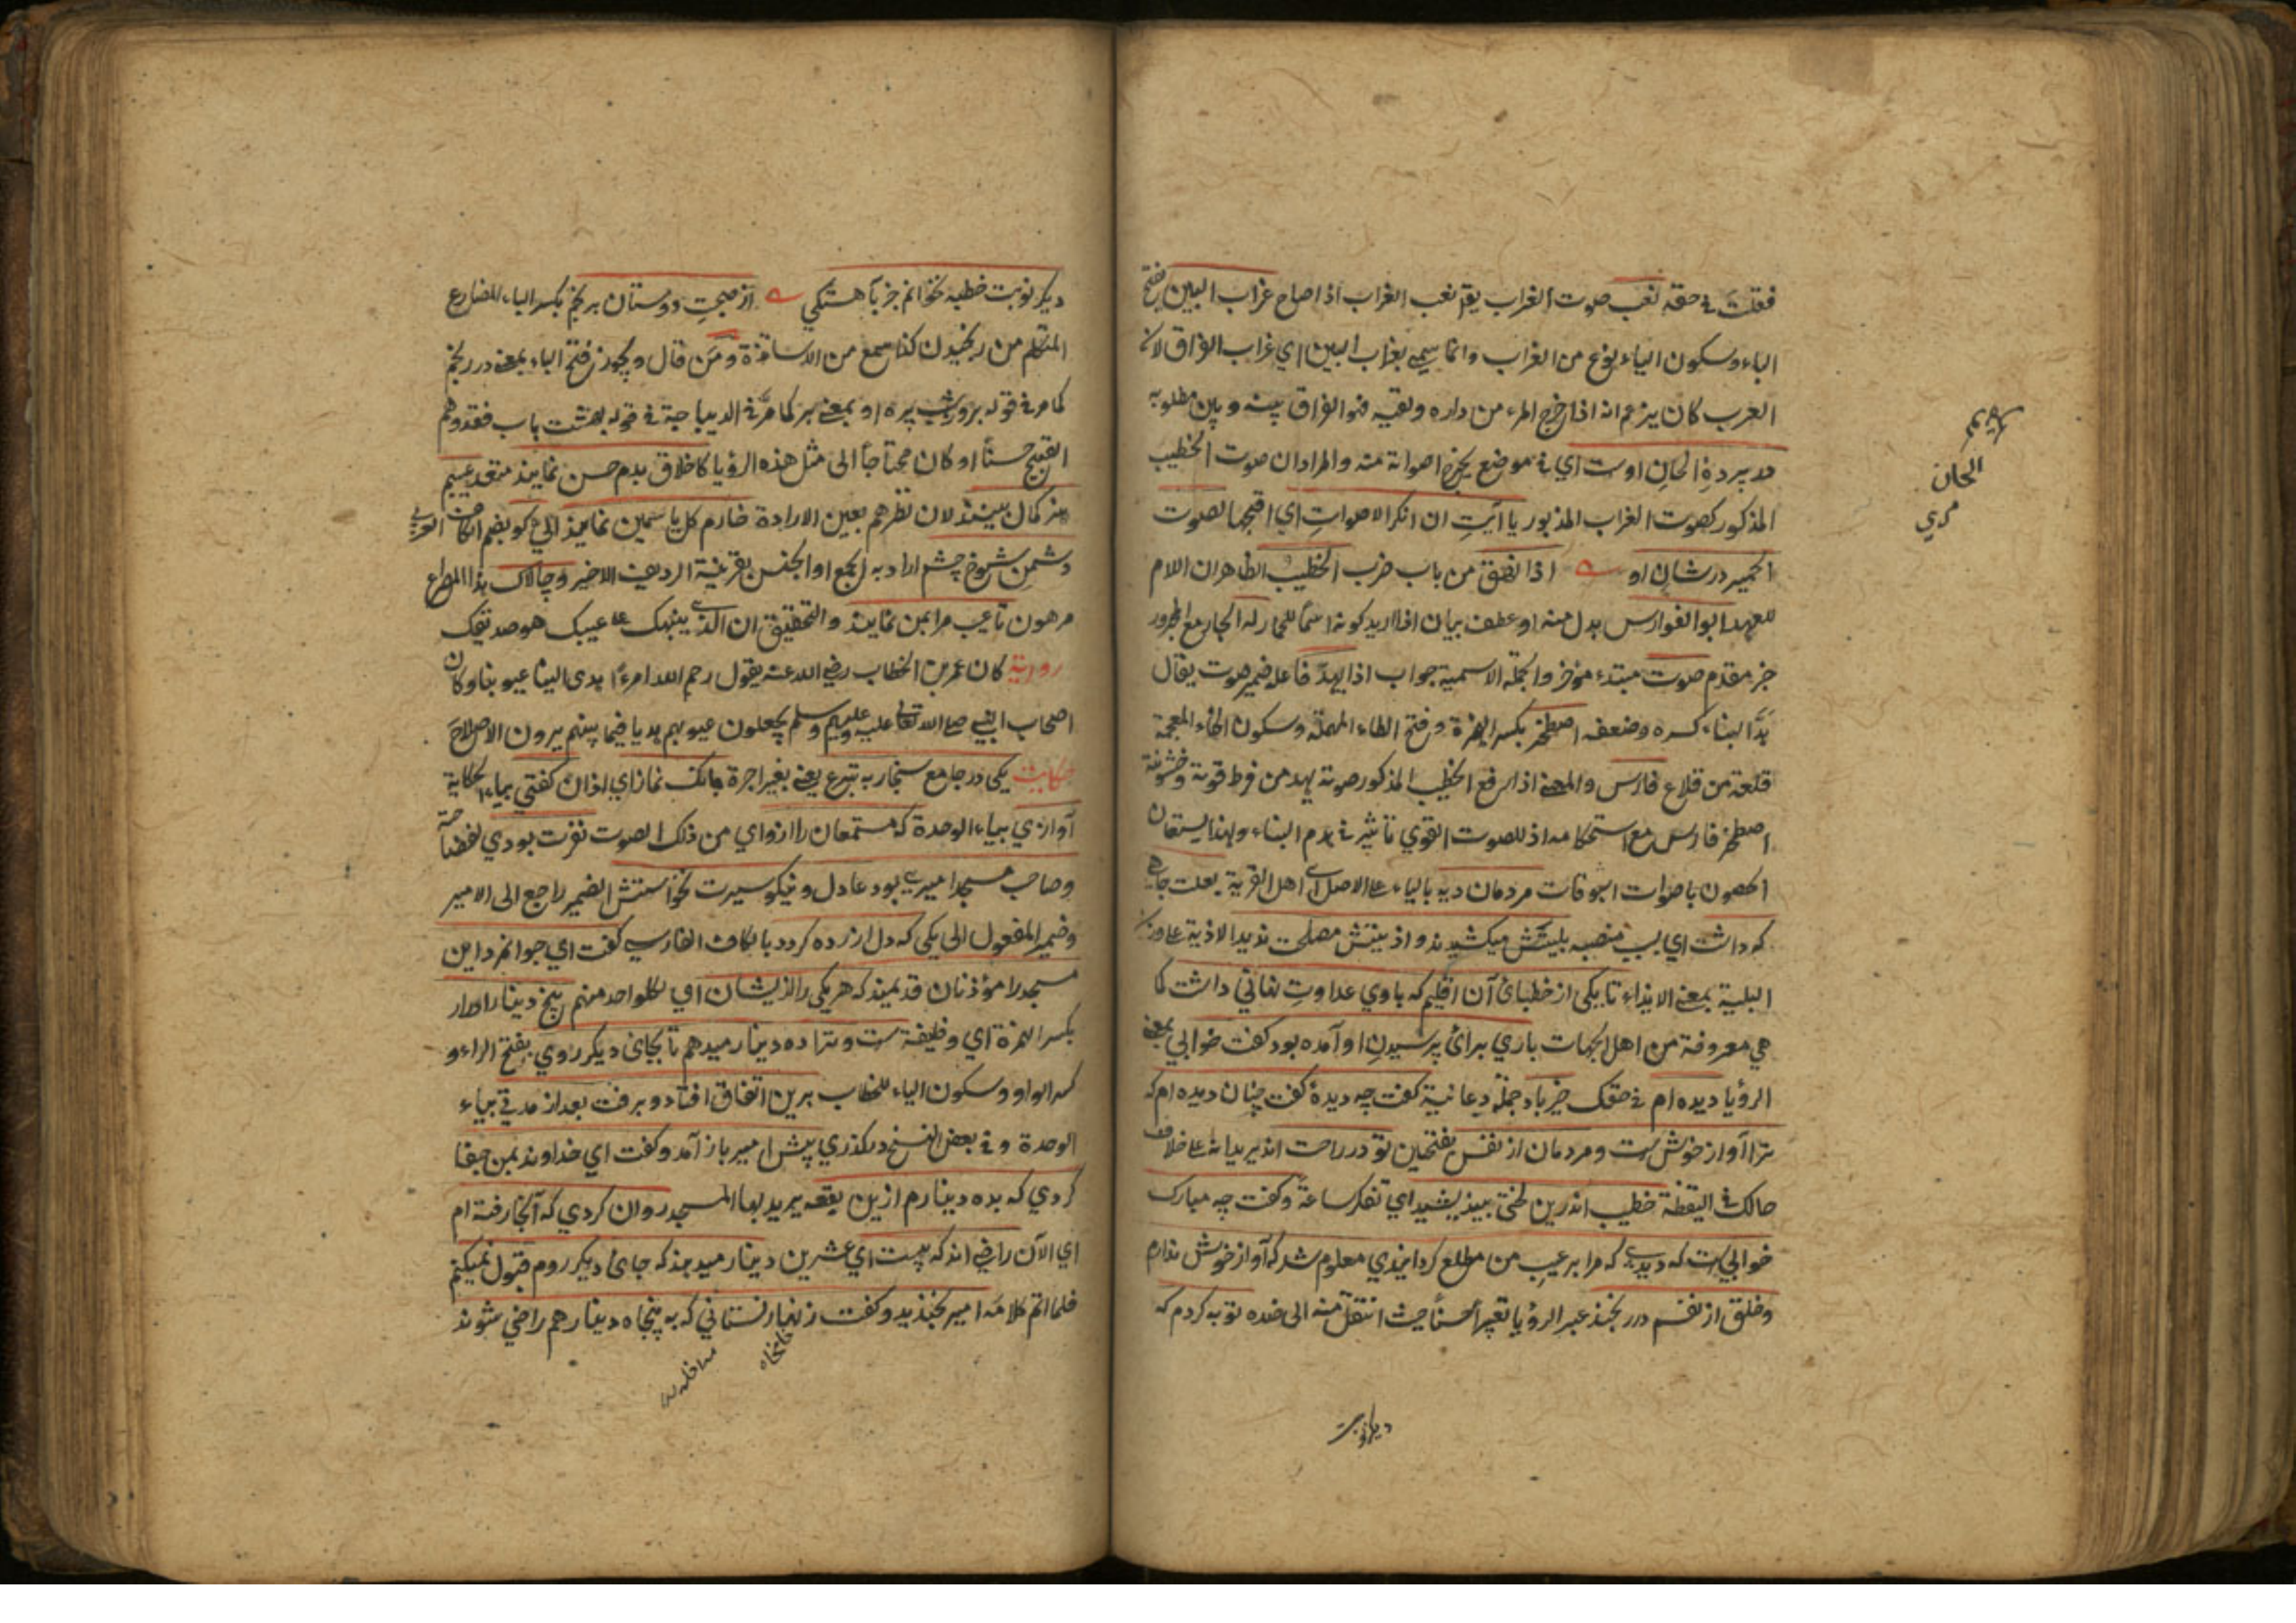 فقلت في حقه نعب صوت الغراب يقم نعب الغراب اذا صاح غراب البين بفتح
الباء وسكون الياء نوع من الغراب وانما سمي بغراب البين اي غراب الفراق لان
العرب كان يزعم انه اذا خرج المرء من داره ولقيه فهو الفراق بينه وبين مطلوبه
در پردهٔ الحان اوست اي في موضع يخرج اصواته منه والمراد ان صوت الخطيب
المذكور كصوت الغراب المذبور يا آيت ان انكر الاصوات اي اقبحها لصوت
الحمير در شان او اذا نهق من باب ضرب الخطيب الظاهر ان اللام
للعهد ابو الفوارس بدل منه او عطف بيان اذا اريد كونه اسما للحمار له الجار مع المجرور
خبر مقدم صوت مبتدء مؤخر والجملة الاسمية جواب اذا يهد فاعله ضمير صوت يقال
هد البناء كسره وضعفه اصطخر بكسر الهمزة وفتح الطاء المهملة وسكون الخاء المعجمة
قلعة من قلاع فارس والمعنى اذا رفع الخطيب المذكور صوته يهد من فرط قوته وخشونته
اصطخر فارس مع استحكامه اذ للصوت القوي تأثير في هدم البناء ولهذا يستعان
الحصون باصوات البوقات مردمان ديه بالياء على الاصل اي اهل القرية بعلت جاهي
كه داشت اي بسبب منصبه بليتش ميكشيدند و اذيتش مصلحت نديدند الاذية على وزن
البلية بمعنى الايذاء تا يكى از خطباى آن اقليم كه با وي عداوت نهاني داشت كما
هي معروفة من اهل الجهات باري براى پرسيدن او آمده بود كفت خوابي بمعنى
الرؤيا ديده ام في حقك خير باد جملة دعائية كفت چه ديدهٔ كفت چنان ديده ام كه
ترا آواز خوش ست ومردمان از نفس بفتحين تو در راحت اند يريد انه على خلاف
حالك في اليقظة خطيب اندرين لختى بينديشيد اي تفكر ساعة وكفت چه مبارك
خوابي ست كه ديدى كه مرا بر عيب من مطلع كردانيدي معلوم شد كه آواز خوش ندارم
وخلق از نفسم در رنجند عبر الرؤيا تعبيرا حسنا حيث انتقل منه الى ضده توبه كردم كه
الحان
ديكر نوبت
ديكر نوبت خطبه نخوانم جز بآهستكي از صحبت دوستان برنجم بكسر الباء المضارع
المتكلم من رنجيدن كذا سمع من الاساتذة ومن قال ويجوز فتح الباء بمعنى در رنجم
كما مر في قوله او بمعنى بر كما مر في الديباجة في قوله بهشت باب فقد وهم
القبيح حسنا او كان محتاجا الى مثل هذه الرؤيا كاخلاق بدم حسن نمايند
هنر كمال بينند لان نظرهم بعين الارادة خارم كل ياسمين نمايند كو بضم الكاف العربي
دشمن شوخ چشم اراد به الجمع او الجنس بقرينة الرديف الاخير وچالاك هذا المصراع
مرهون تا عيب مرا بمن نمايند والتحقيق ان الذي ينبهك على عيبك هو صديقك
رواية كان عمر بن الخطاب رضي الله عنه يقول رحم الله امرءا اهدى الينا عيوبنا وكان
اصحاب النبي صلى الله تعالى عليه وعليهم وسلم يجعلون عيوبهم هدايا فيما بينهم يرون الاصلاح
حكايت يكى در جامع سنجار به تبرع يعني بغير اجرة بانك نماز اي اذان كفتى بياء الحكاية
آوازي بياء الوحدة كه مستمعان را ازو اي من ذلك الصوت نفرت بودي
وصاحب مسجد اميرى بود عادل ونيكو سيرت نخواستش الضمير راجع الى الامير
وضمير المفعول الى يكى كه دل آزرده كردد بالكاف الفارسي كفت اي جوانمرد اين
مسجد را مؤذنان قديمند كه هر يكى را از ايشان اي لكل واحد منهم پنج دينار ادرار
بكسر الهمزة اي وظيفة ست وترا ده دينار ميدهم تا بجاى ديكر روي بفتح الراء و
كسر الواو وسكون الياء للخطاب برين اتفاق افتاد وبرفت بعد از مدتي بياء
الوحدة وفي بعض النسخ در كذري پيش امير باز آمد وكفت اي خداوند بمن حيفا
كردي كه بده دينارم ازين بقعه يريد بها المسجد روان كردي كه آنجا رفته ام
اي الآن راضي اند كه بيست اي عشرين دينار ميدهند كه جاى ديكر روم قبول نميكنم
فلما اتم كلامه امير بخنديد وكفت زنهار نستاني كه به پنجاه دينار هم راضي شوند